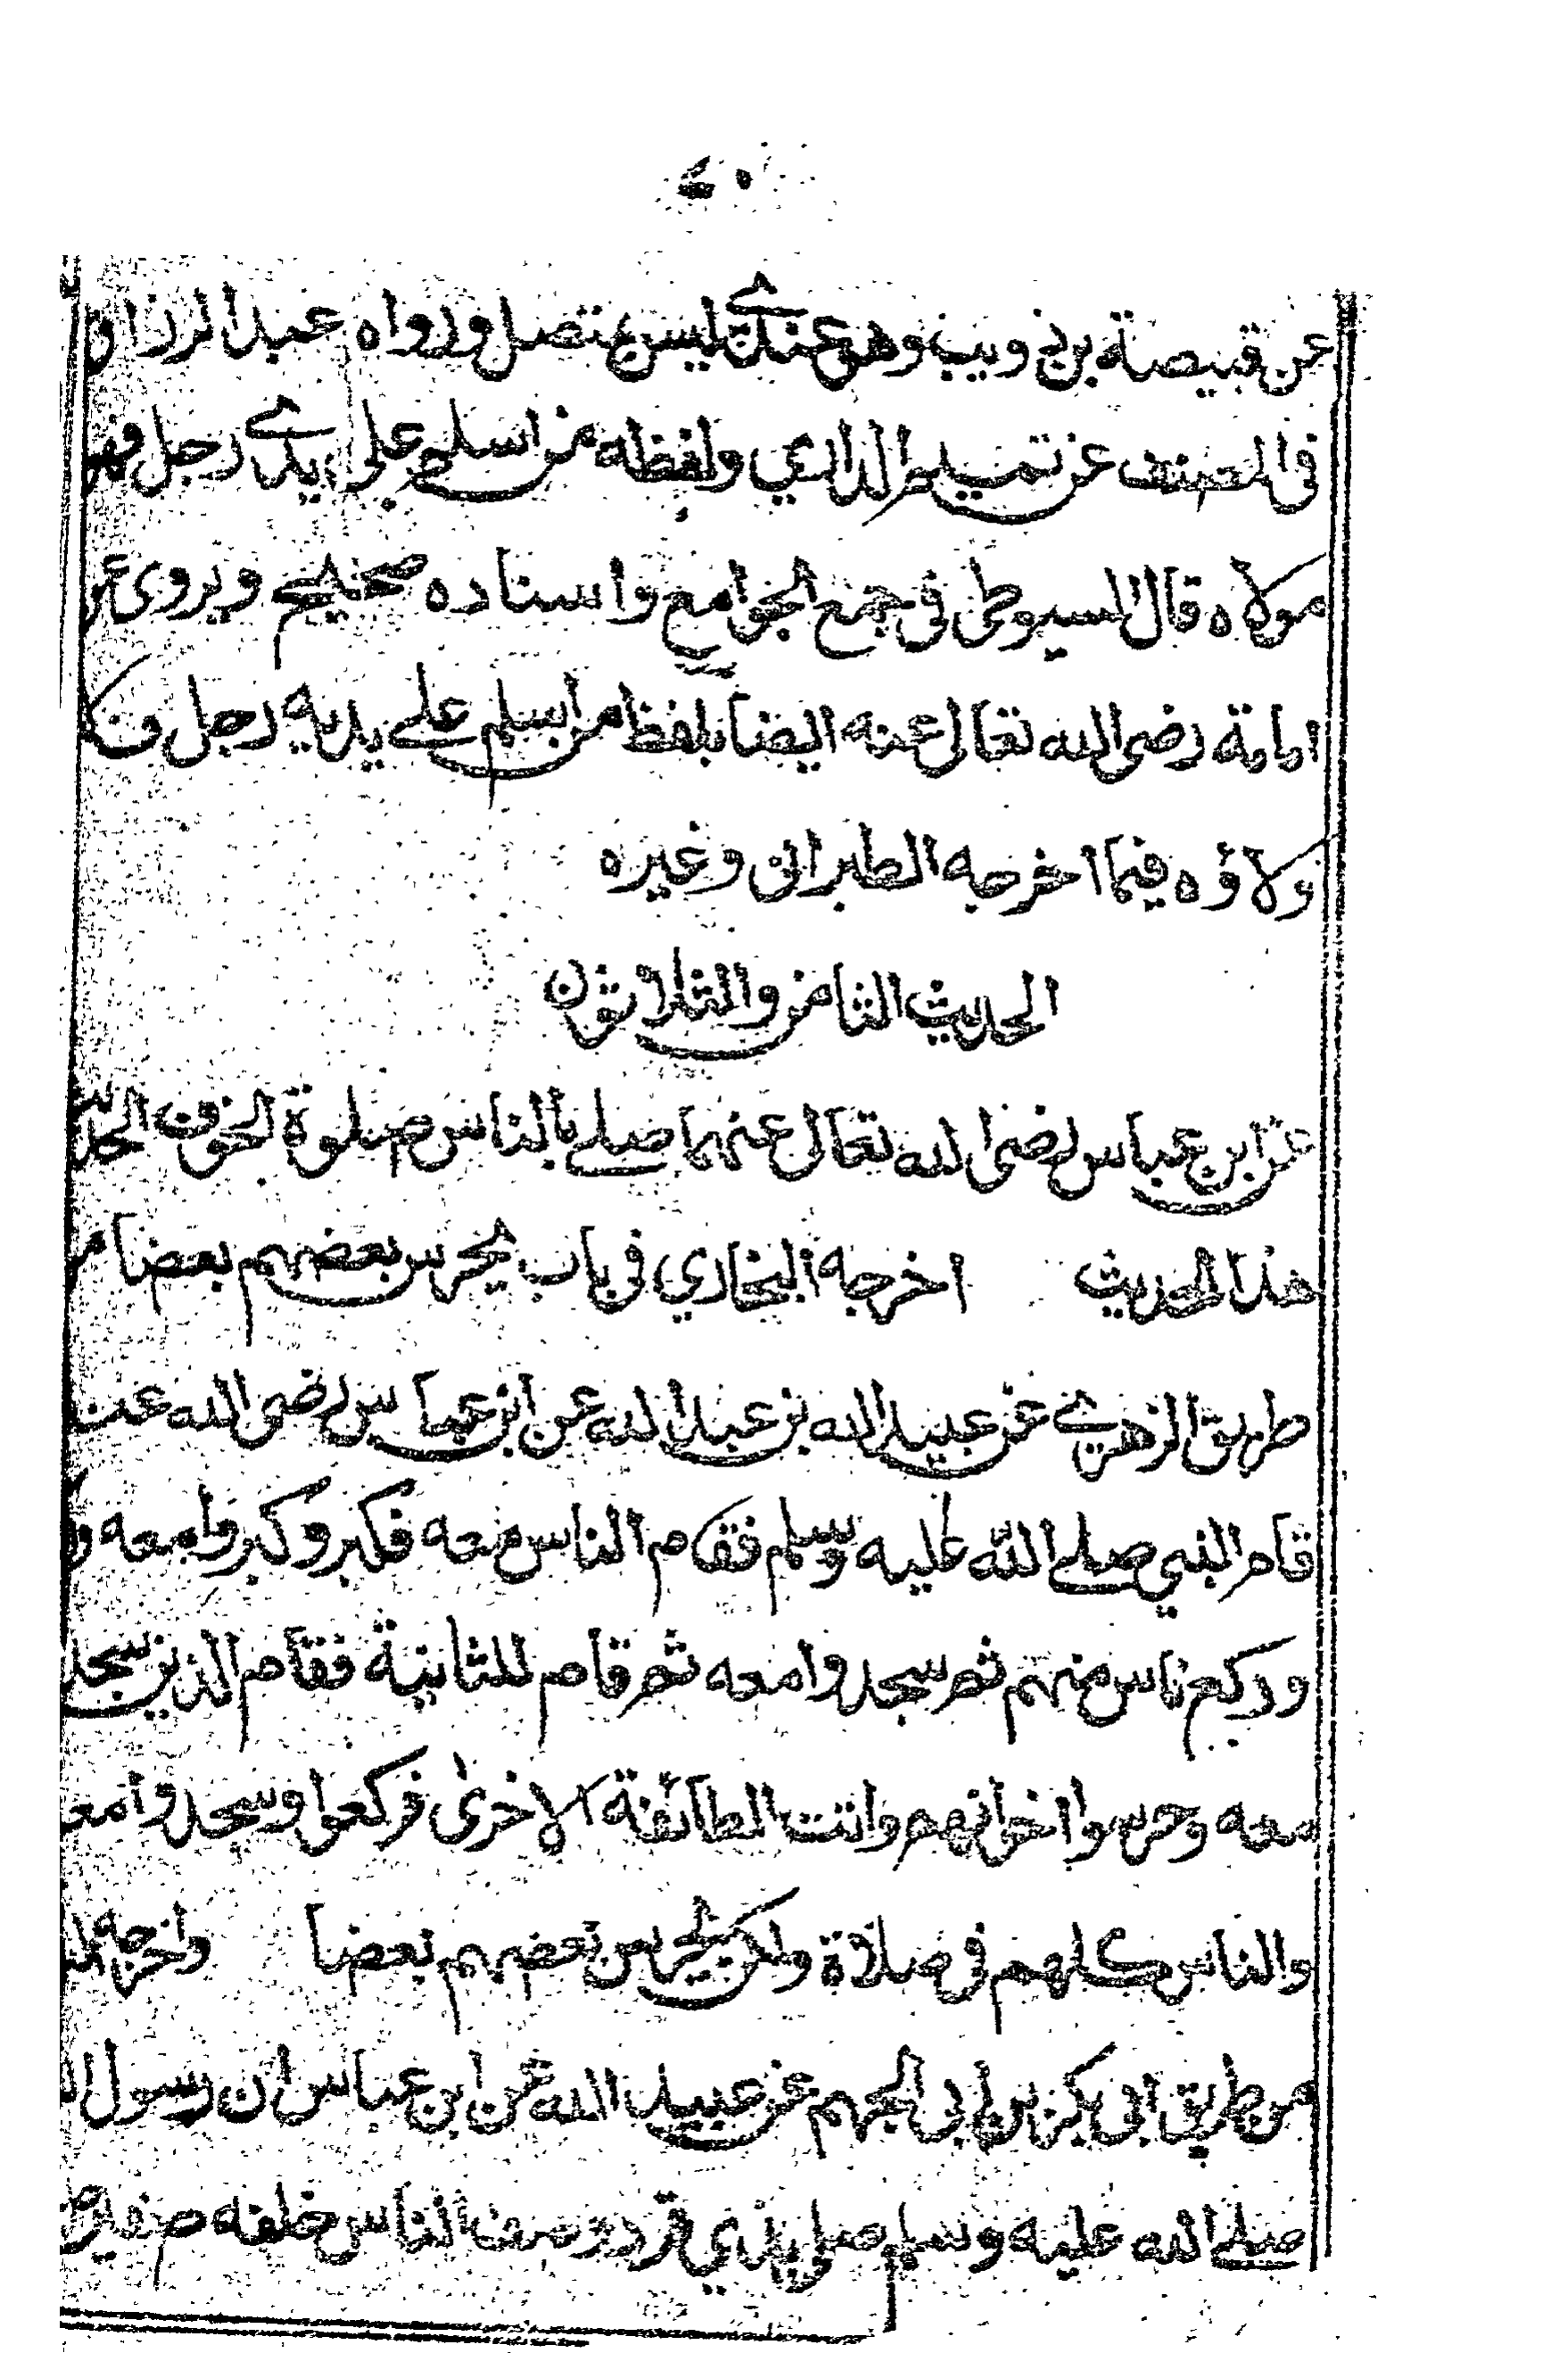 عن قبيصة بن ذويب وهو عندي ليس بمتصل ورواه عبد الرزاق
فى المصنف عن تميم الداري ولفظه من اسلم على يدي رجل فهو
مولاه قال السيوطى فى جمع الجوامع واسناده صحيح ويروى عن
امامة رضى الله تعالى عنه ايضا بلفظ من اسلم على يديه رجل ف
ولاؤه فيما اخرجه الطبرانى وغيره
الحديث الثامن والثلاثون
عن ابن عباس رضى الله تعالى عنهما صلى بالناس صلوة الخوف الحديث
هذا الحديث اخرجه البخاري فى باب يحرس بعضهم بعضا من
طريق الزهرى عن عبيد الله بن عبد الله عن ابن عباس رضى الله عن
قام النبي صلى الله عليه وسلم فقام الناس معه فكبر وكبروا معه
وركع ناس منهم ثم سجد وا معه ثم قام للثانية فقام الذين سجد
معه وحرسوا اخوانهم واتت الطائفة الاخرى فركعوا وسجد وا مع
والناس كلهم فى صلاة ولكن يحرس بعضهم بعضا واخرجه
من طريق ابى بكر بن ابى الجهم عن عبيد الله عن ابن عباس ان رسول ا
صلى الله عليه وسلم صلى بذي قرد صف الناس خلفه صفين